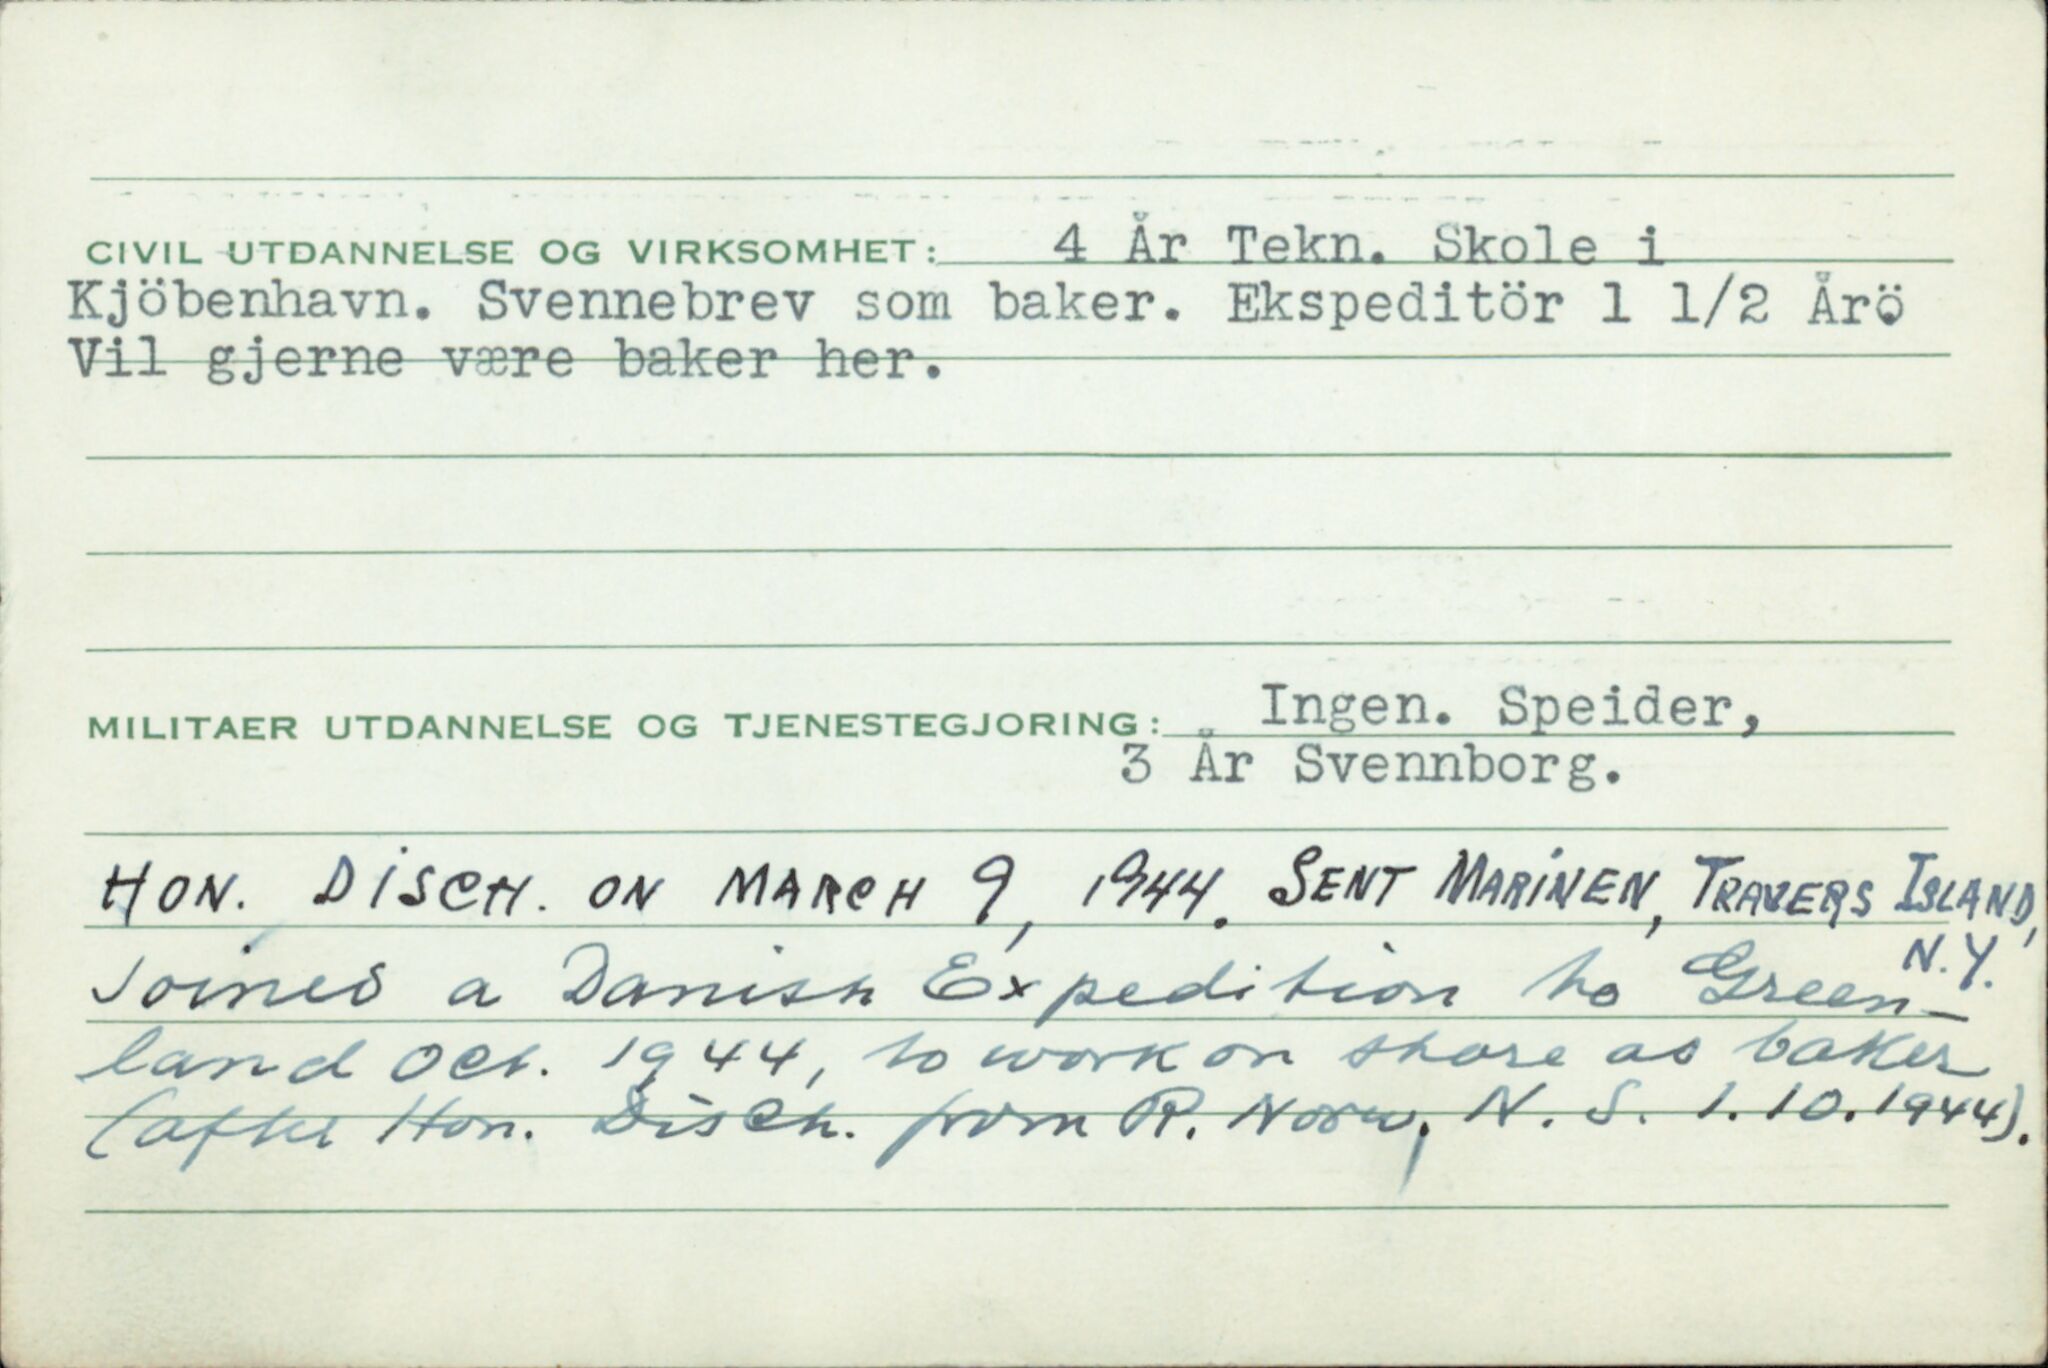 CIVIL UTDANNELSE OG VIRKSOMHET: 4 År Tekn. Skole i
Kjöbenhavn. Svennebrev som baker. Ekspeditör 1 1/2 Årö.
Vil gjerne være baker her.
MILITAER UTDANNELSE OG TJENESTEGJORING: Ingen. Speider,
3 År Svennborg.
HON. DISCH. ON MARCH 9, 1944. SENT MARINEN, TRAVERS ISLAND,
N.Y.
Joined a Danish Expedition to Green-
land Oct. 1944, to work on shore as baker
(after Hon. Disch. from R. Norw. N. S. 1.10.1944).